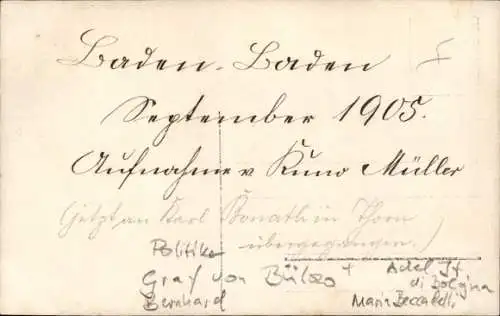 Baden-Baden
September 1905.
Aufnahme v Kuno Müller
(jetzt an Karl Bonath in Thorn
übergegangen.)
Politiker
Graf von Bülow +
Bernhard
Adel It
di Bologna
Maria Beccadelli